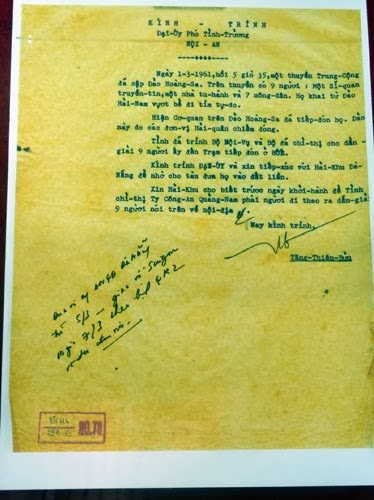 KÍNH - TRÌNH
Đại-Úy Phó Tỉnh-Trưởng
NỘI - AN
Ngày 1-3-1961, hồi 5 giờ 35, một thuyền Trung-Cộng
đã cập Đảo Hoàng-Sa. Trên thuyền có 9 người : Một Sĩ-quan
truyền-tin, một nhà tu-hành và 7 nông-dân. Họ khai từ Đảo
Hải-Nam vượt bể đi tìm tự-do.
Hiện Cơ-quan trên Đảo Hoàng-Sa đã tiếp-đón họ. Đảo
này do các đơn-vị Hải-quân chiếm đóng.
Tỉnh đã trình Bộ Nội-Vụ và Bộ đã chỉ-thị cho dẫn-
giải 9 người ấy đến Trạm tiếp đón ở HUẾ.
Kính trình ĐẠI-ÚY và xin tiếp-xúc với Hải-Khu Đà-
NẴNG để nhờ cho tàu đưa họ vào đất liền.
Xin Hải-Khu cho biết trước ngày khởi-hành để Tỉnh
chỉ-thị Ty Công-An Quảng-Nam phái người đi theo ra dẫn-giải
9 người nói trên về nội-địa
Nay kính trình,
Tăng-Thiên-Bửu
5/3
7/3
NO.78